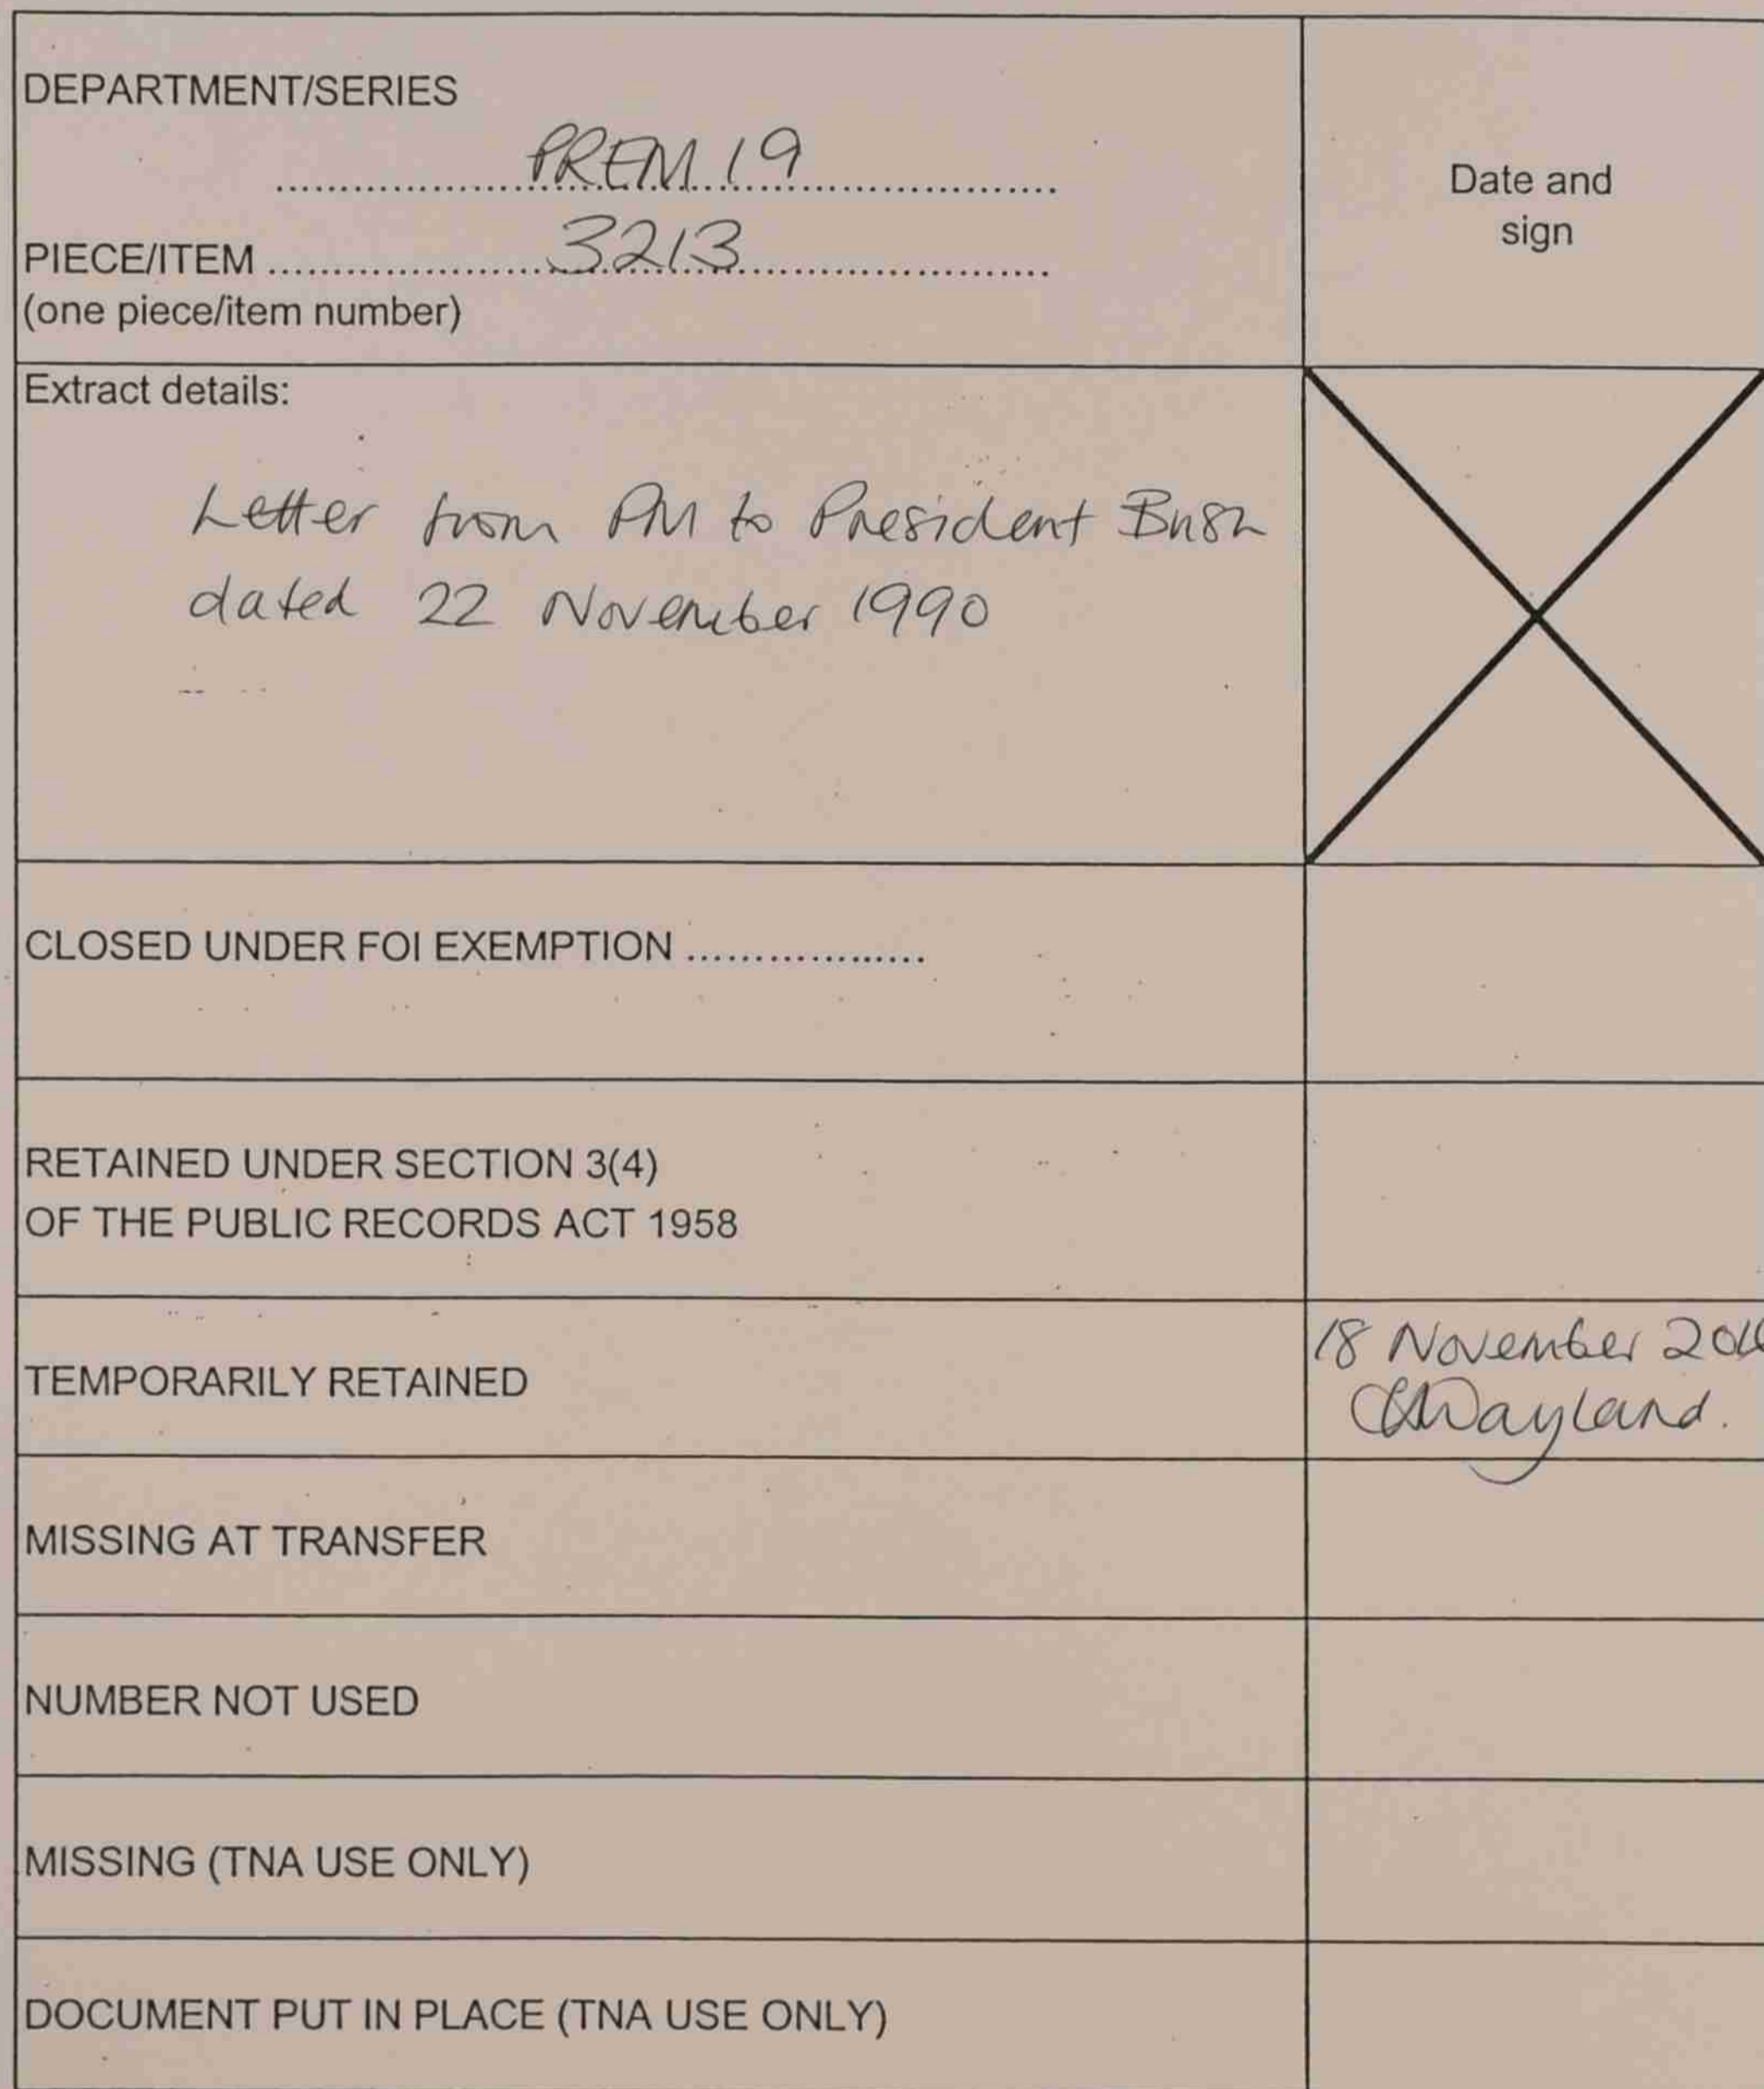 DEPARTMENT/SERIES
PREM 19
Date and
sign
PIECE/ITEM 3213
(one piece/item number)
Extract details:
Letter from PM to President Bush
dated 22 November 1990
CLOSED UNDER FOI EXEMPTION ..................
RETAINED UNDER SECTION 3(4)
OF THE PUBLIC RECORDS ACT 1958
TEMPORARILY RETAINED
18 November
Wayland.
MISSING AT TRANSFER
NUMBER NOT USED
MISSING (TNA USE ONLY)
DOCUMENT PUT IN PLACE (TNA USE ONLY)